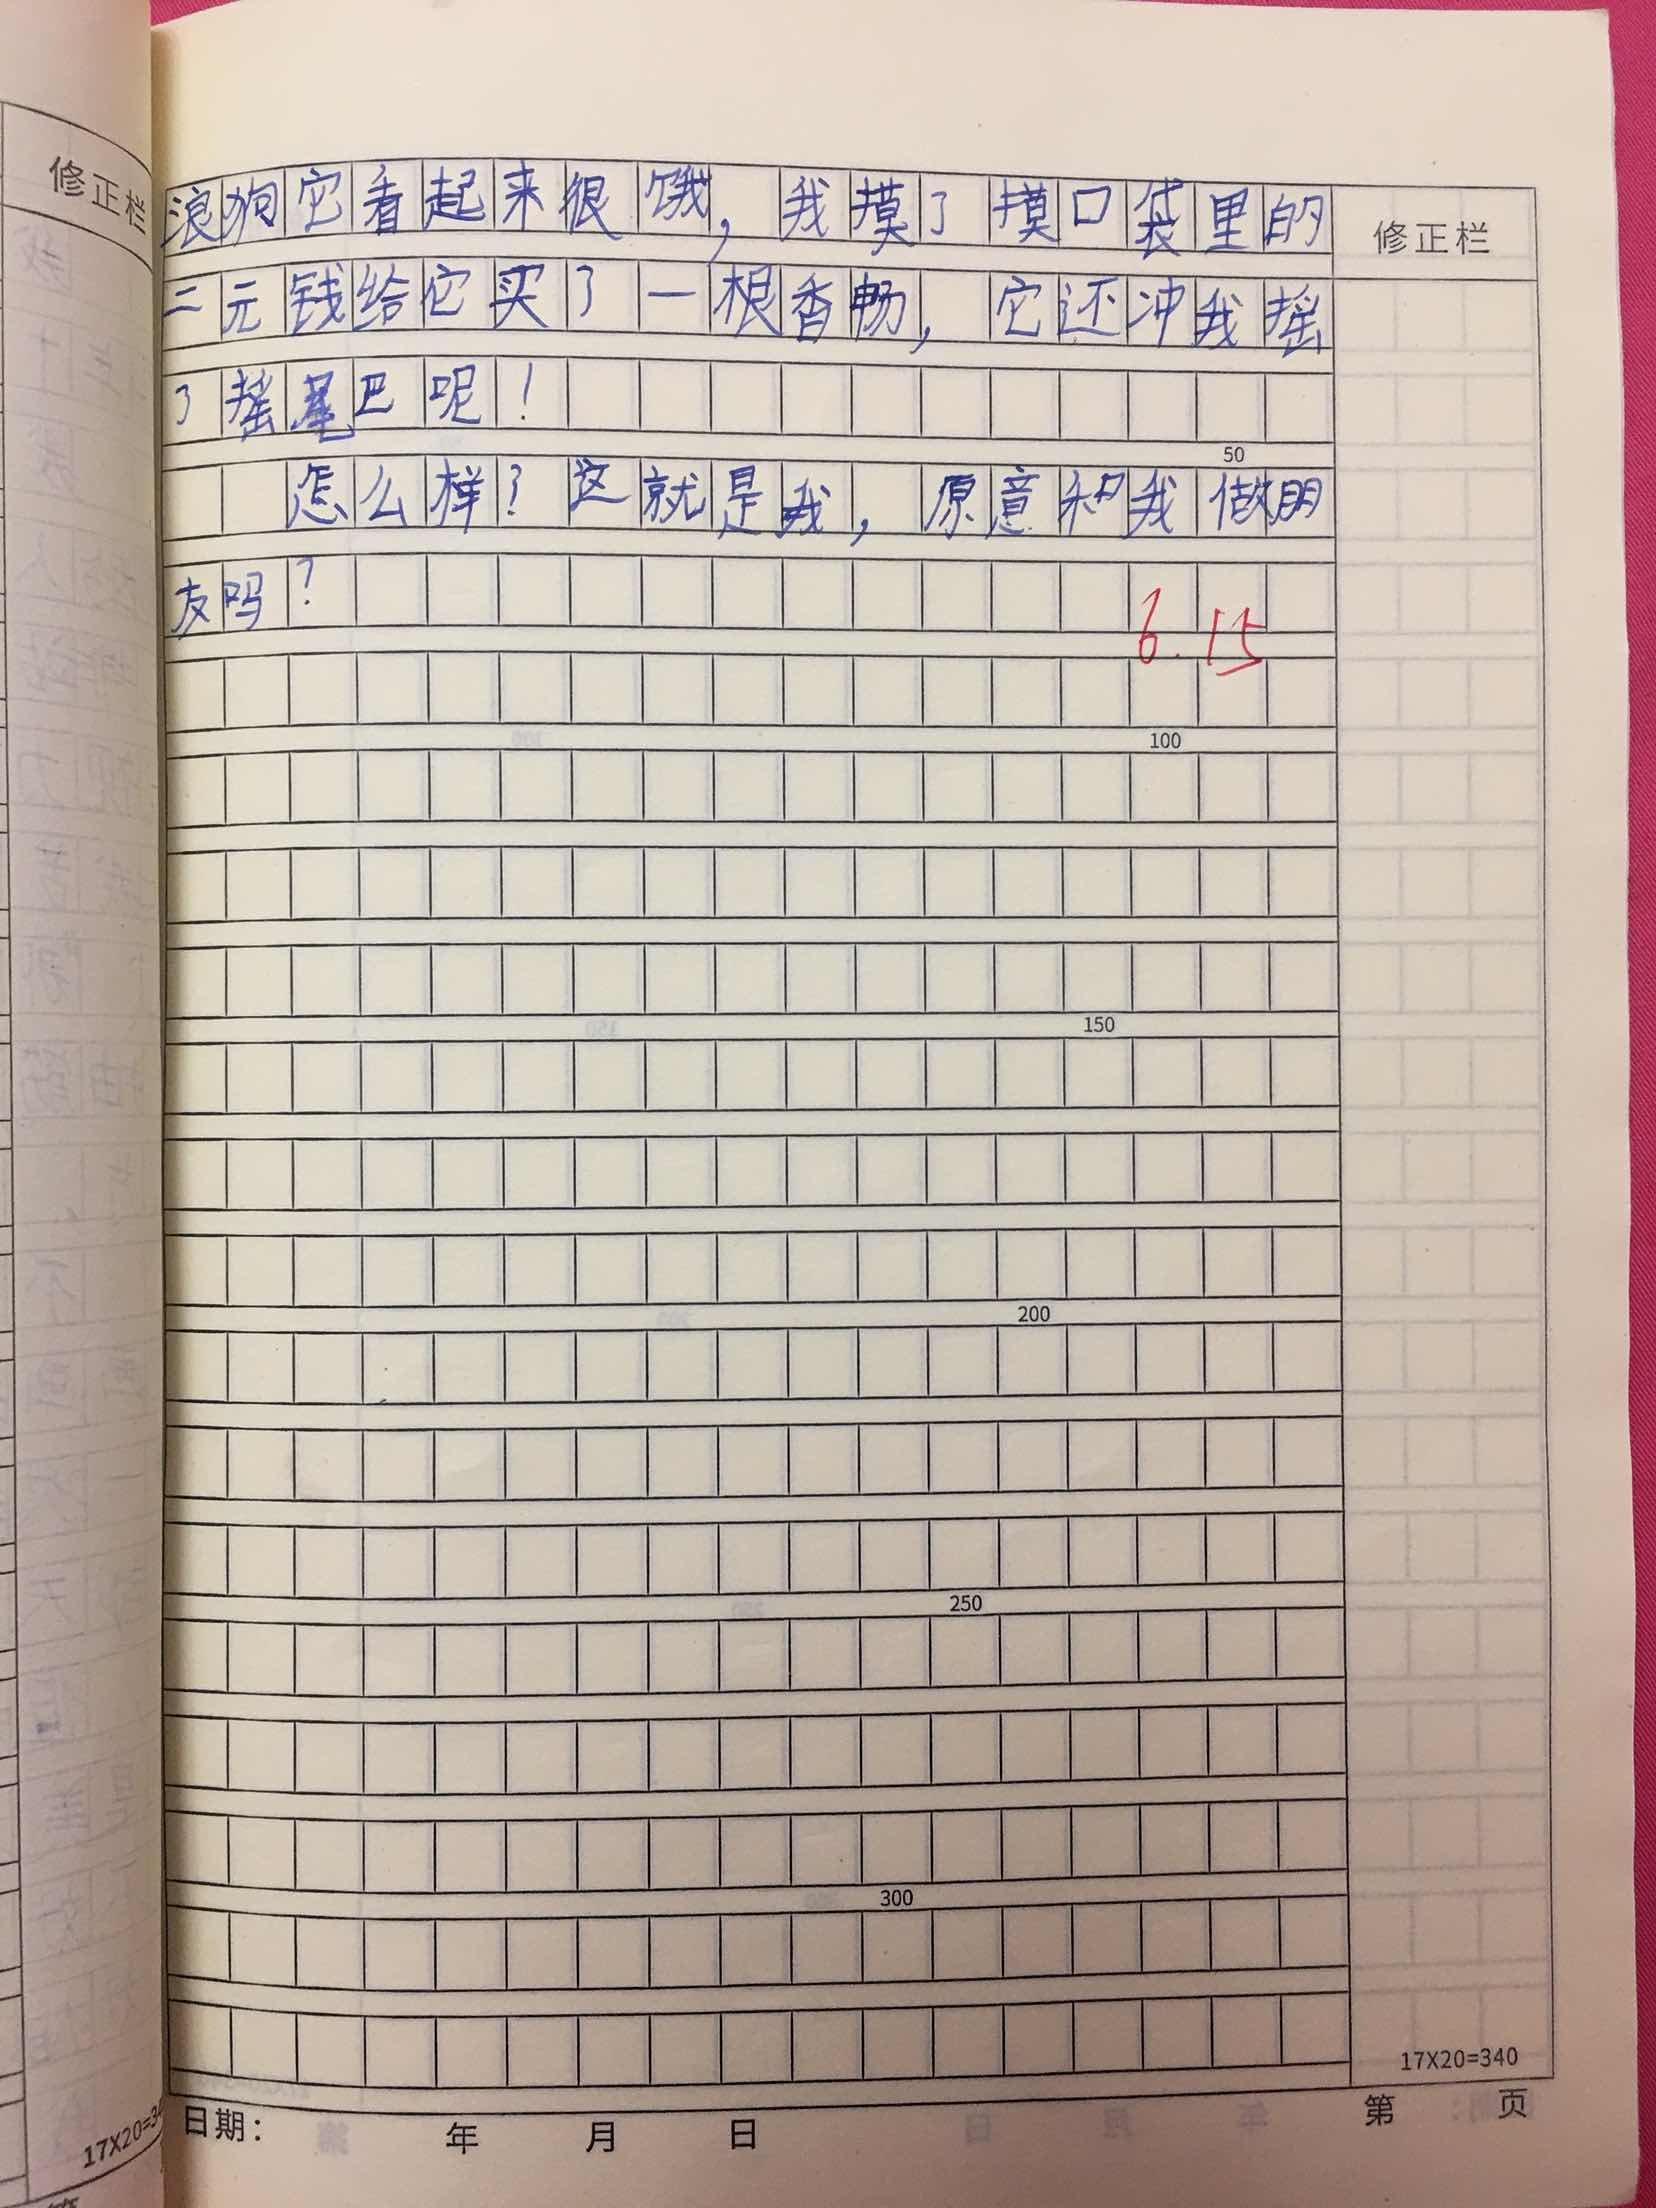 修正栏
修正栏
浪狗它看起来很饿，我摸了摸口袋里的
二元钱给它买了一根香畅，它还冲我摇
了摇尾巴呢！
50
怎么样？这就是我，原意和我做朋
友吗？
6.15
100
150
200
250
300
17X20=340
日期： 年 月 日
第 页
17X20=34